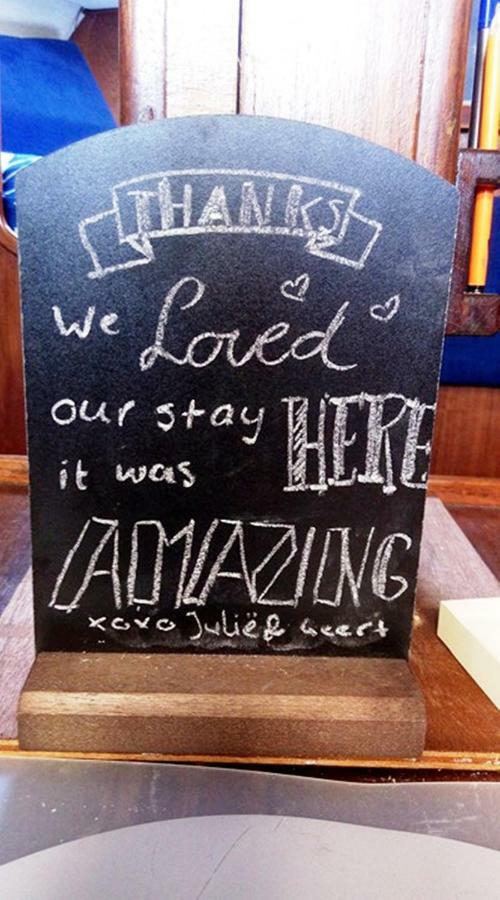 THANKS
We Loved
our stay HERE
it was
AMAZING
xoxo Julië & Geert